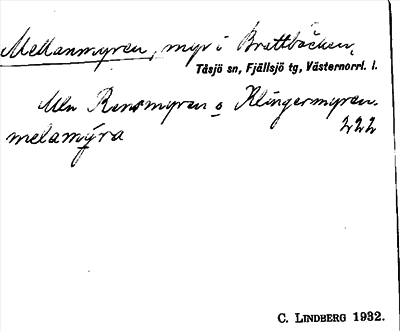 Mellanmyren, myr i Brattbäcken,
Tåsjö sn, Fjällsjö tg, Västernorrl. l.
Mln Rensmyren o Klingermyren.
melamýra 222
C. LINDBERG 1932.